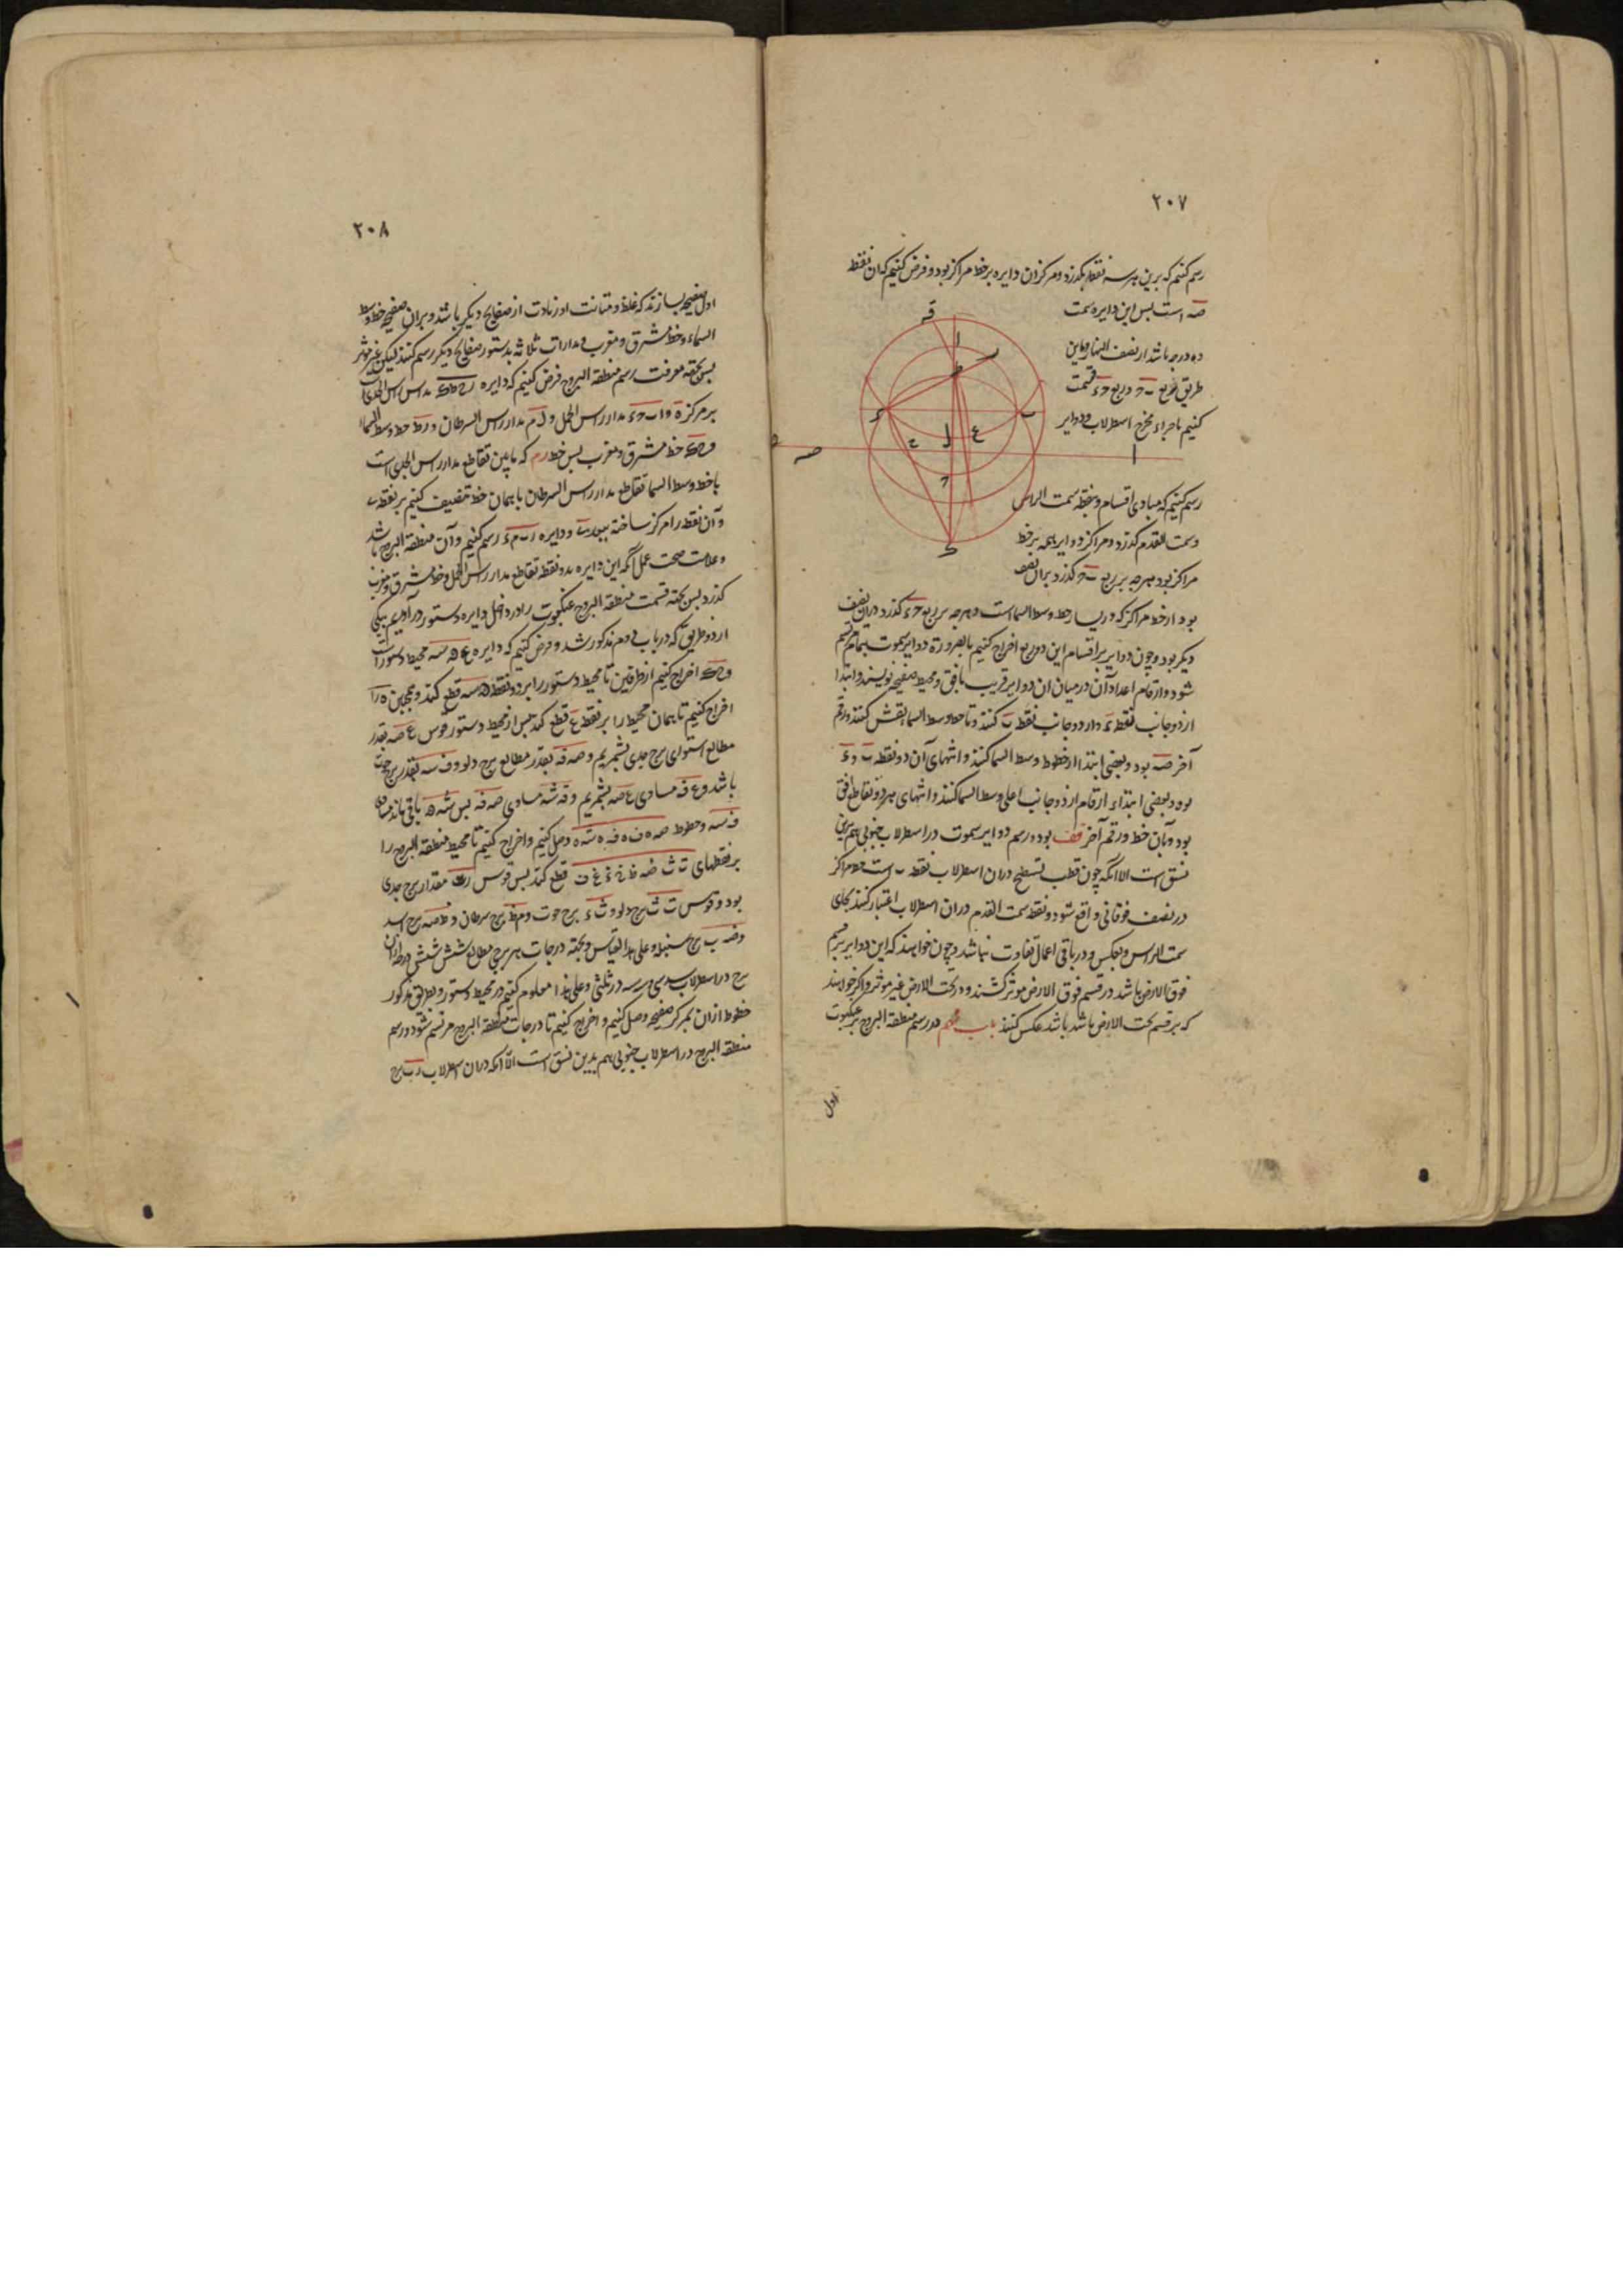 ۲۰۷
رسم کنیم که برین هر سه نقطه بگذرد و مرکز ان دایره بر خط مراکز بود و فرض کنیم که ان نقطه
صه است بس این دایره سمت
ده درجه باشد از نصف النهار و باین
طریق ربع
کنیم باجزاء مخرج اسطرلاب و دوایر
رسم کنیم که مبادی اقسام و نقطه سمت الراس
و سمت القدم گذرد و مراکز دوایر همه بر خط
مراکز بود هرچه بر ربع گذرد بران نصف
بود از خط مراکز که در یسار خط وسط السما است و هرچه بر ربع گذرد دران نصف
دیگر بود و چون دوایر بر اقسام این دو ربع اخراج کنیم بالضرورة دوایر سموت بتمام رسم
شود و ارقام اعداد آن در میان ان دوایر قریب بافق و محیط صفیحه نویسند و ابتدا
از دو جانب نقطه ء و از دو جانب نقطه ب کنند و تا خط وسط السما نقش کنند و رقم
آخر صه بود و بعضی ابتدا از خطوط وسط السما کنند و انتهای آن دو نقطه ب و ء
بود و بعضی ابتداء ارقام از دو جانب اعلی وسط السما کنند و انتهای هر دو تقاطع افق
بود بآن خط و رقم آخر قف بود و رسم دوایر سموت در اسطرلاب جنوبی هم برین
نسق است الا انکه چون قطب تسطیح دران اسطرلاب نقطه است خط مراکز
در نصف فوقانی واقع شود و نقطه سمت القدم دران اسطرلاب اعتبار کنند بجای
سمت الراس و بعکس و در باقی اعمال تفاوت نباشد و چون خواهند که این دوایر بر قسم
فوق الارض باشد در قسم فوق الارض موثر کشند و در تحت الارض غیر موثر و اگر خواهند
که بر قسم تحت الارض باشد عکس کنند باب در رسم منطقة البروج بر عنکبوت
اول
ق
ا
ر
ط
ء
ب
ح
ل
ع
صه
ا
۲۰۸
اول صفیحه بسازند که غلظ و متانت او زیادت از صفایح دیگر باشد و بران صفیحه خط وسط
السماء و خط مشرق و مغرب و مدارات ثلاثه بدستور صفایح دیگر رسم کنند لیکن غیر موثر
بس بجهة معرفت رسم منطقة البروج فرض کنیم که دایره مدار راس الجدی است
بر مرکز ه و اب حء مدار راس الحمل و ل م مدار راس السرطان و رط خط وسط السما
و خط مشرق و مغرب بس خط رم که مابین تقاطع مدار راس الجدی است
با خط وسط السما و تقاطع مدار راس السرطان با همان خط تنصیف کنیم بر نقطه
و آن نقطه را مرکز ساخته ببعد و دایره رب م ء رسم کنیم و آن منطقة البروج باشد
و علامت صحت عمل آنکه این دایره بدو نقطه تقاطع مدار راس الحمل و خط مشرق و مغرب
گذرد بس بجهة قسمت منطقة البروج عنکبوت را در داخل دایره دستور در آوریم بیکی
از دو طریق که در باب دوم مذکور شد و فرض کنیم که دایره محیط دستور است
و اخراج کنیم از طرفین تا محیط دستور را بر دو نقطه قطع کند و همچنین را
اخراج کنیم تا همان محیط را بر نقطه ع قطع کند بس از محیط دستور قوس ع صه بقدر
مطالع استوای برج جدی بشمریم و صه فه بقدر مطالع برج دلو و ف سه بقدر برج حوت
باشد و ع فه مساوی ع صه بشمریم و فه شه مساوی صه فه بس شه باقی ماند مساوی
ف سه و خطوط وصل کنیم و اخراج کنیم تا محیط منطقة البروج را
بر نقطهای قطع کند بس قوس مقدار برج جدی
بود و قوس برج دلو و برج حوت و برج سرطان و برج اسد
و برج سنبله و علی هذا القیاس و بجهة درجات هر برجی مطالع شش شش درجه ازان
برج در اسطرلاب سدسی و سه سه در ثلثی و علی هذا معلوم کنیم در محیط دستور و بطریق مذکور
خطوط ازان بمرکز صفیحه وصل کنیم و اخراج کنیم تا درجات منطقة البروج مرتسم شود و رسم
منطقة البروج در اسطرلاب جنوبی هم بدین نسق است الا آنکه دران اسطرلاب برج